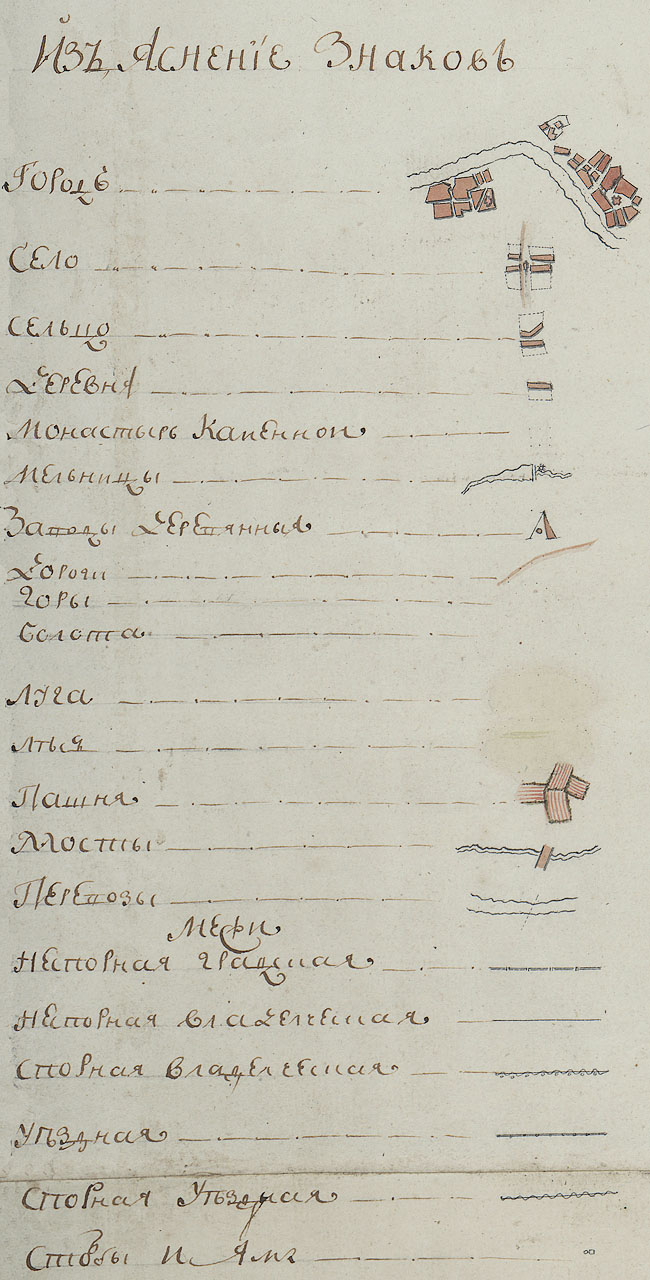 Изъ Яснение Знаковъ
Городъ
Село
Сельцо
Деревня
Монастырь Каменной
Мельницы
Заводы Деревянныя
Дороги
Горы
Болота
Луга
Лѣса
Пашня
Мосты
Перевозы
Межи
Неспорная градская
Неспорная владелческая
Спорная владелческая
Уѣздная
Спорная Уѣздная
Столбы и Ямы